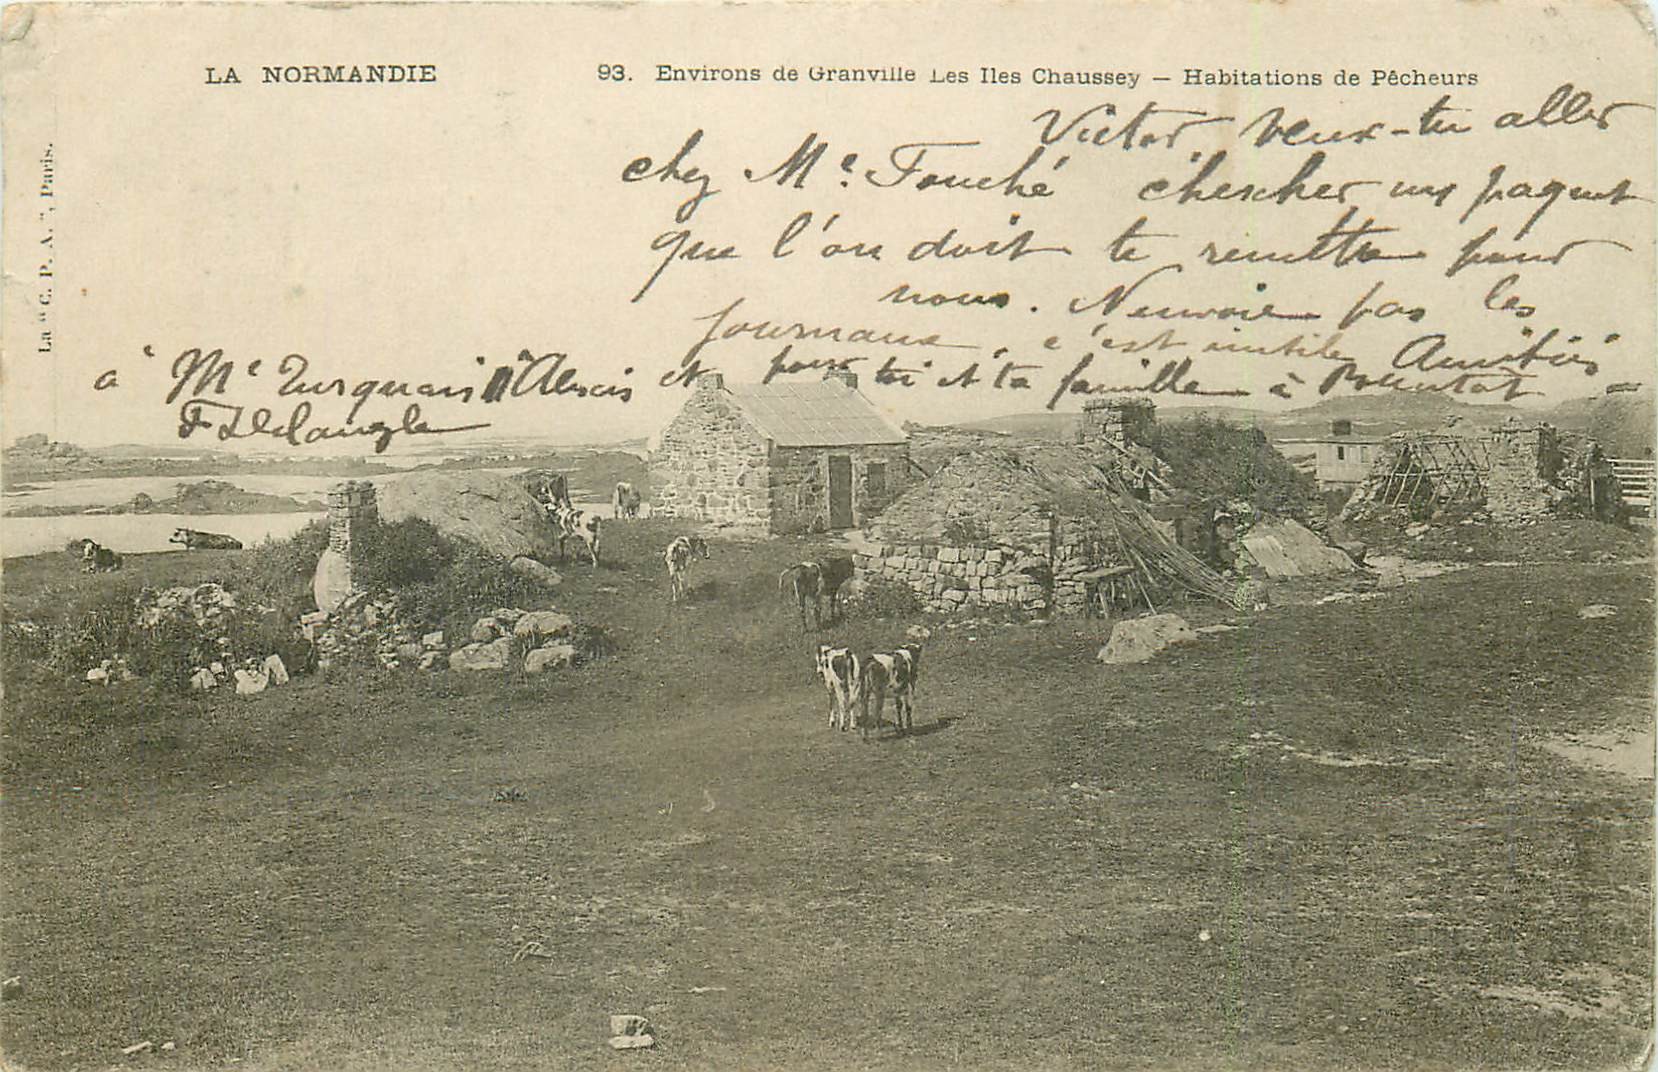 LA NORMANDIE
93. Environs de Granville Les Iles Chaussey — Habitations de Pêcheurs
La "C. P. A.", Paris.
Victor, veux-tu aller
chez Mr. Fouché chercher un paquet
que l'on doit te remettre pour
nous. N'envoie pas les
journaux, c'est inutile Amitiés
à Mr Turquais Alexis et pour toi et ta famille à
F Delangle